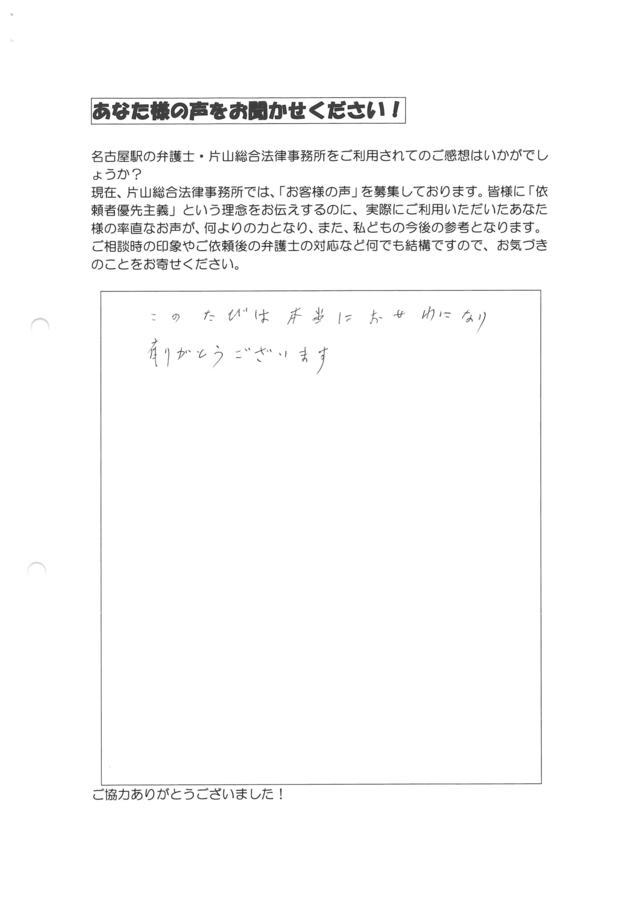 あなた様の声をお聞かせください！
名古屋駅の弁護士・片山総合法律事務所をご利用されてのご感想はいかがでし
ょうか？
現在、片山総合法律事務所では、「お客様の声」を募集しております。皆様に「依
頼者優先主義」という理念をお伝えするのに、実際にご利用いただいたあなた
様の率直なお声が、何よりの力となり、また、私どもの今後の参考となります。
ご相談時の印象やご依頼後の弁護士の対応など何でも結構ですので、お気づき
のことをお寄せください。
このたびは本当にお世わになり
有りがとうございます
ご協力ありがとうございました！